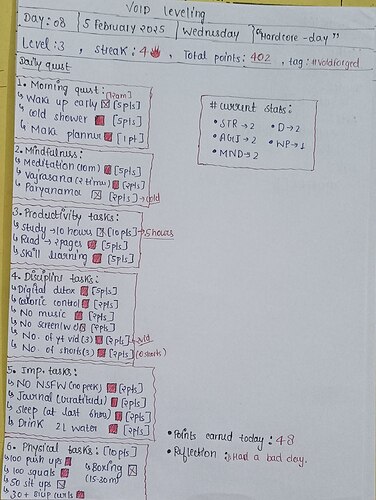 VOID Leveling
Day: 08 | 5 February 2025 | Wednesday | "Hardcore-day"
Level: 3, streak: 4🔥, Total points: 402, tag: #voidforged
Daily quest
1. Morning quest: [12am]
↳ Wake up early ☒ [5pts]
↳ cold shower [5pts]
↳ Make planner [1pt]
2. Mindfulness:
↳ Meditation (10m) [5pts]
↳ Vajrasana (2 times) [2pts]
↳ Paryanama ☒ [2pts] →
3. Productivity tasks:
↳ Study → 10 hours ☒ [10pts] → 5 hours
↳ Read → 2pages [5pts]
↳ Skill learning [5pts]
4. Discipline tasks:
↳ Digital detox [5pts]
↳ caloric control [2pts]
↳ No music [2pts]
↳ No screen ☒ [2pts]
↳ No. of yt vid (3) [2pts] → vid
↳ No. of shorts (3) [2pts] (0 shorts)
5. Imp. tasks:
↳ NO NSFW (no peek) [2pts]
↳ Journal (Gratitude) [2pts]
↳ Sleep (at last 6hrs) [2pts]
↳ Drink 2L water [2pts]
6. Physical tasks: [10pts]
↳ 100 push ups
↳ 100 squats
↳ 50 sit ups ☒
↳ 30+ curls
↳ Boxing ☒
(15-30m)
# current stats:
• STR → 2 • D → 2
• AGI → 2 • WP → 1
• MND → 2
• Points earned today: 48
• Reflection: Had a bad day.